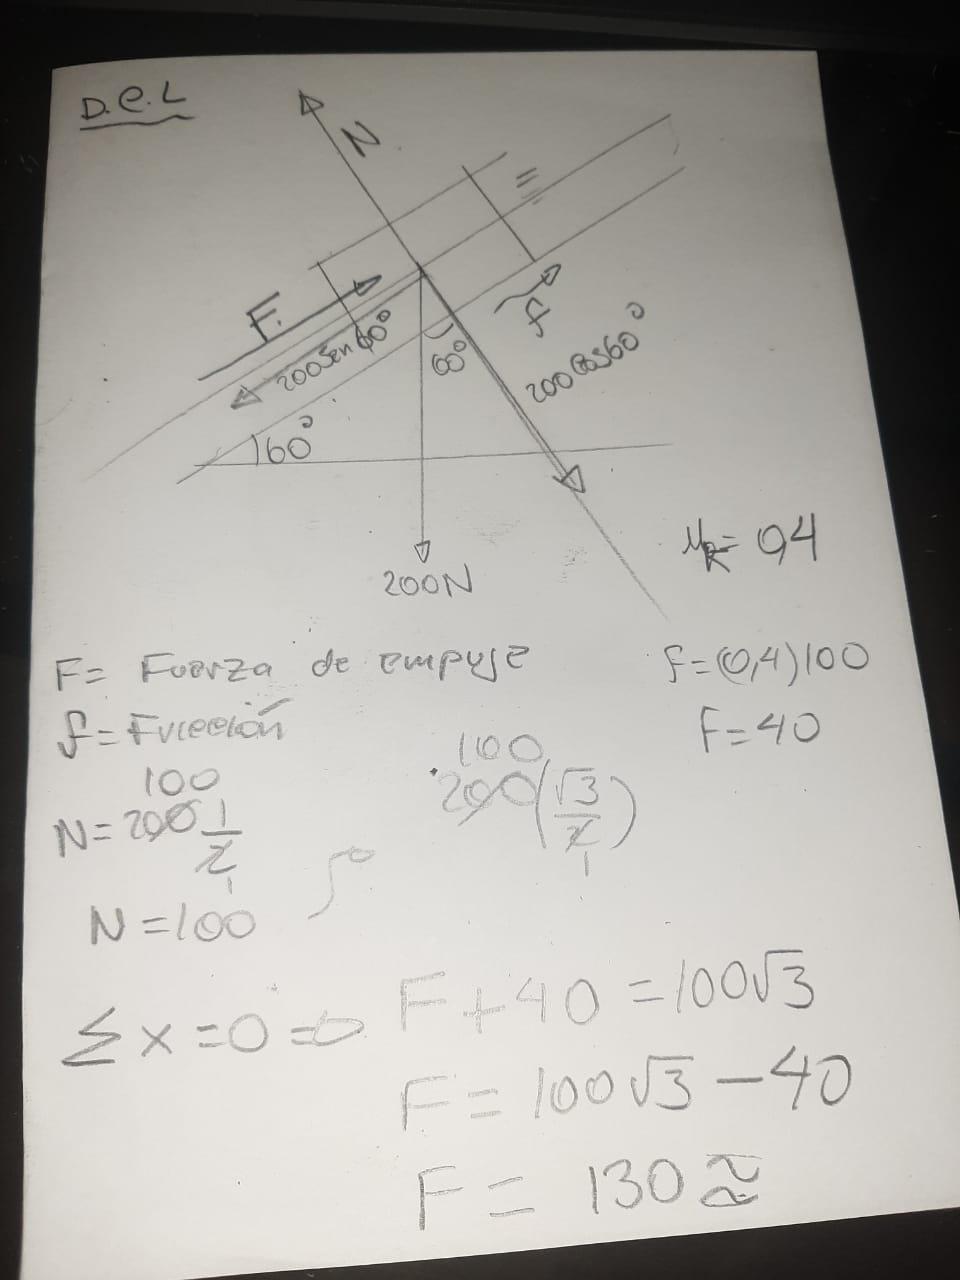 D.C.L
N
F.
f
200Sen60°
60°
200Cos60°
60°
200N
μk= 04
F= Fuerza de empuje
f=(0,4)100
f= Fricción
F=40
100
N=200 1/2
1
N=100
100
200(√3/2)
1
Σx=0 ⇒ F+40=100√3
F=100√3-40
F= 130≈